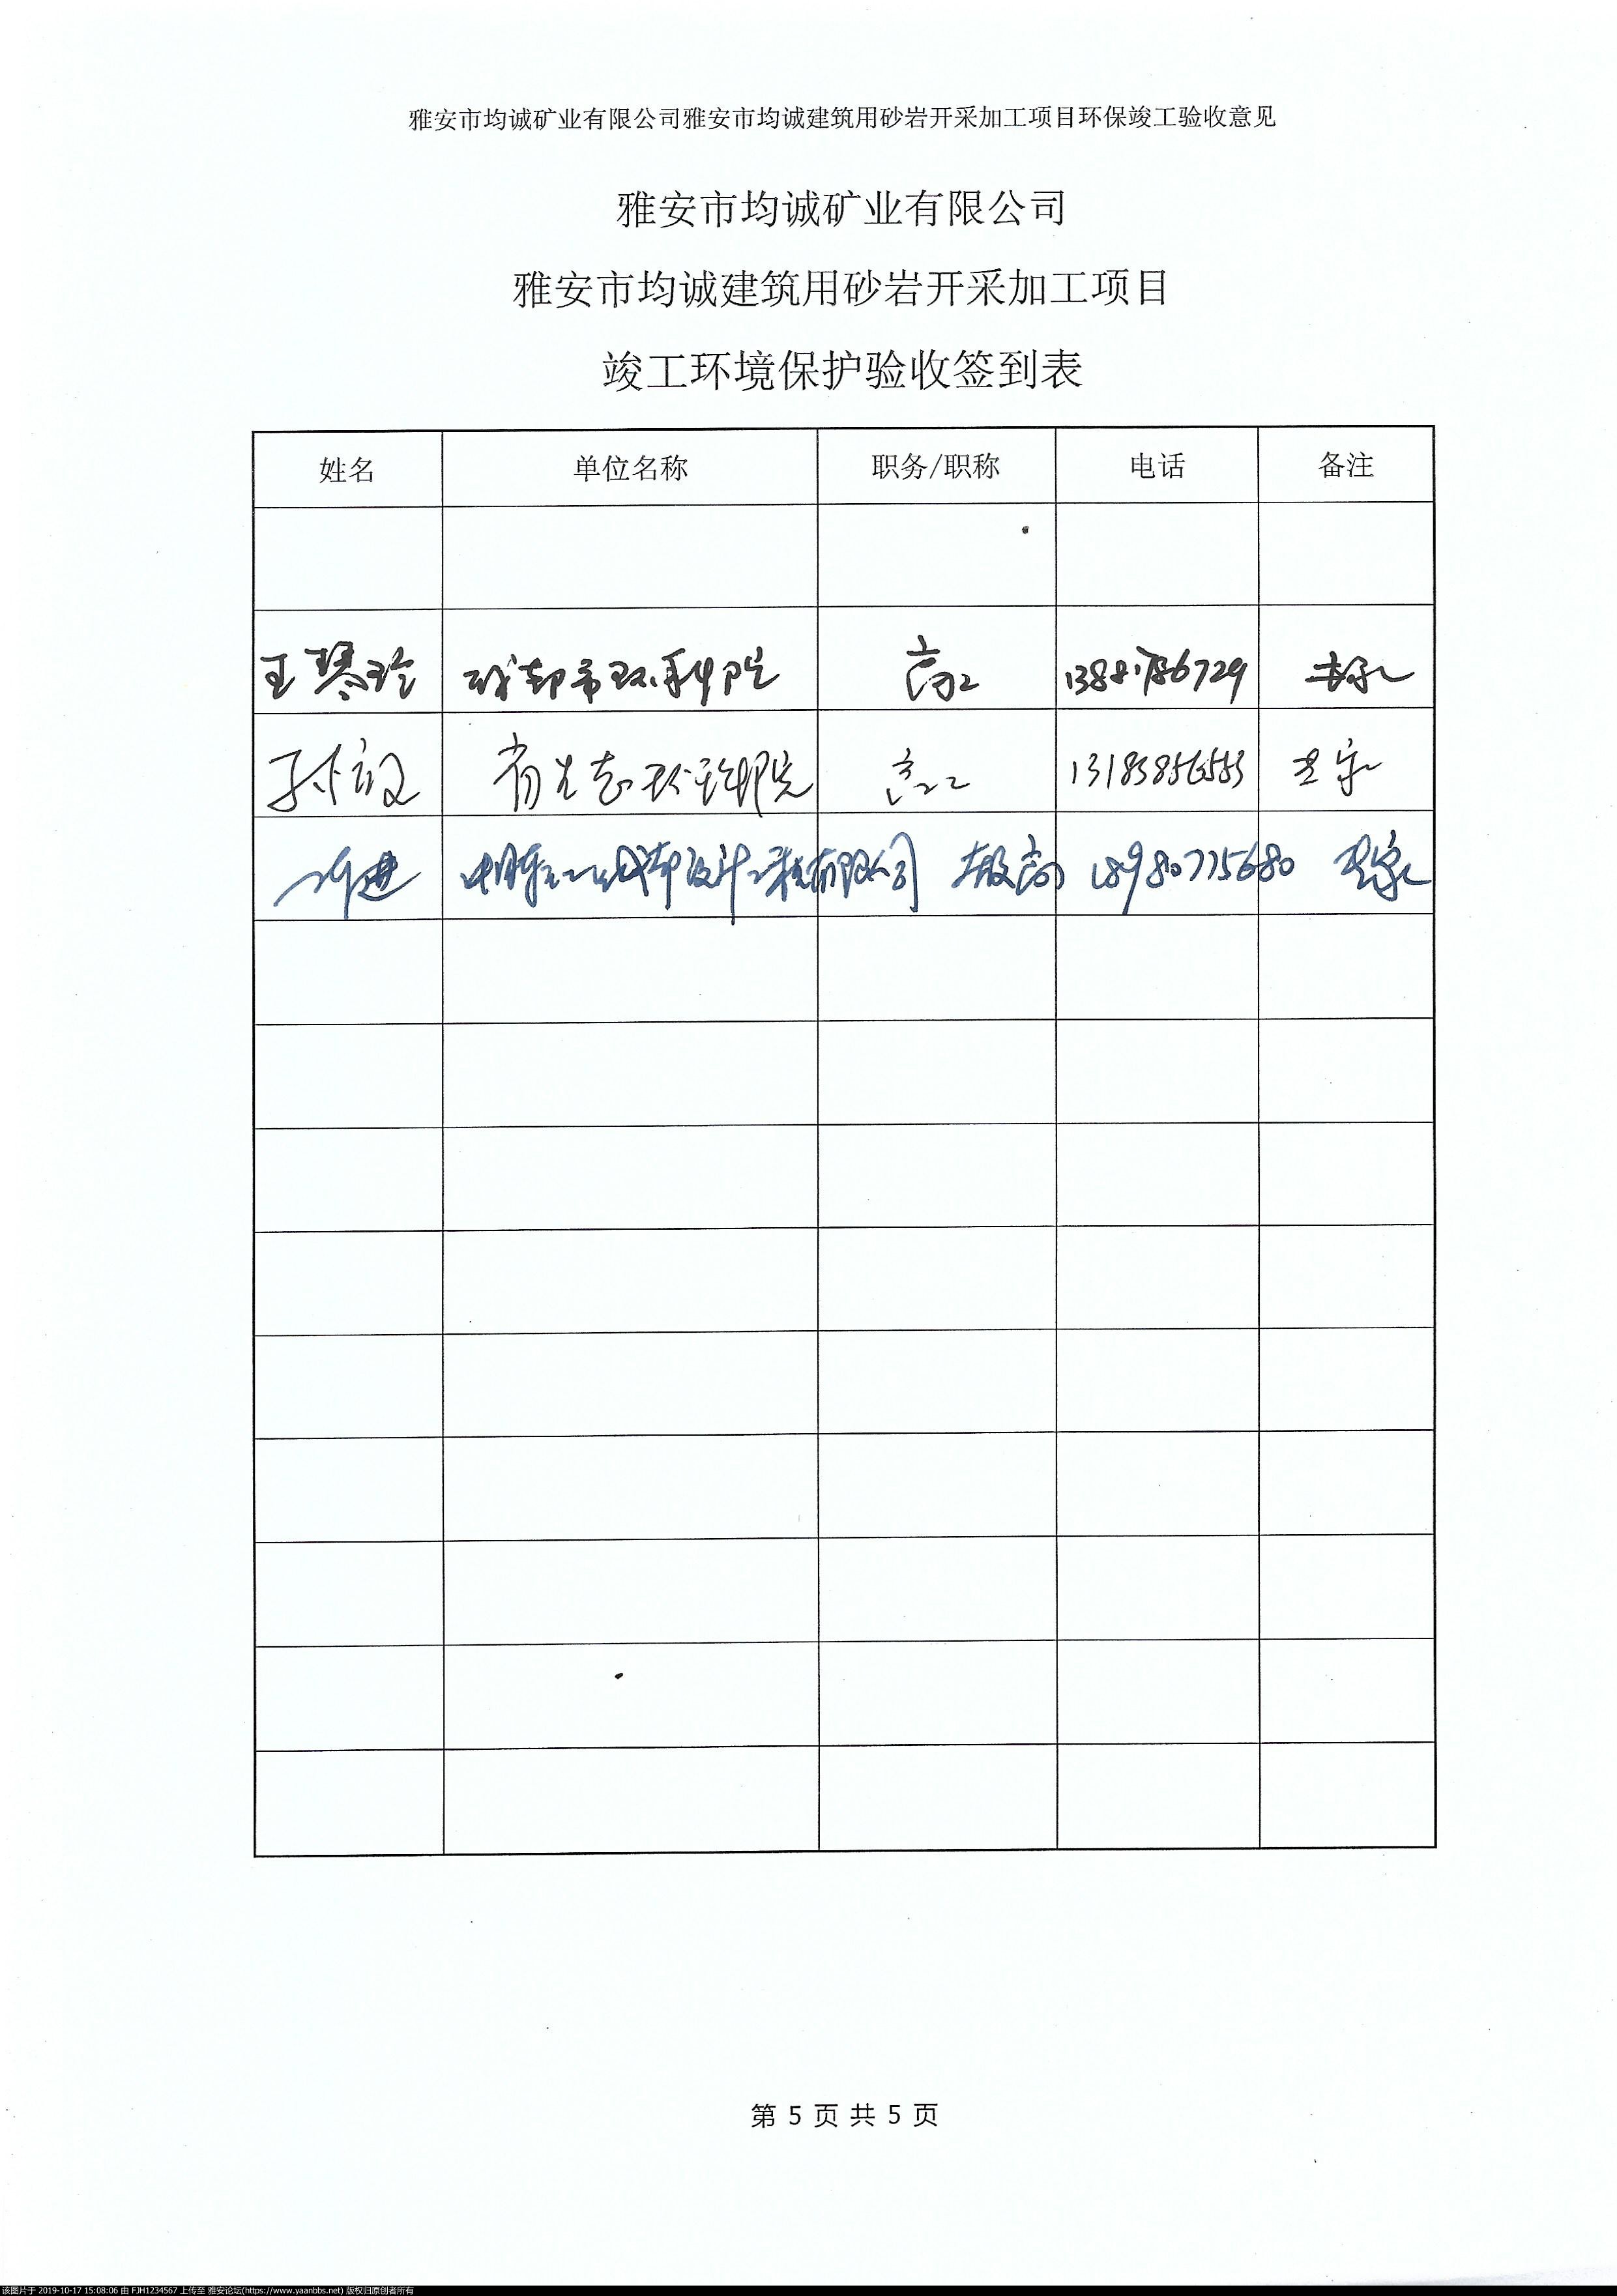 雅安市均诚矿业有限公司雅安市均诚建筑用砂岩开采加工项目环保竣工验收意见
雅安市均诚矿业有限公司
雅安市均诚建筑用砂岩开采加工项目
竣工环境保护验收签到表
姓名 单位名称 职务/职称 电话 备注
王琴玲 成都市环科院 高工 专家
孙 高工 13183856583 专家
进 成都设计工程有限公司 教高 18980775680 专家
第 5 页 共 5 页
该图片于 2019-10-17 15:08:06 由 FJH1234567 上传至 雅安论坛(https://www.yaanbbs.net) 版权归原创者所有